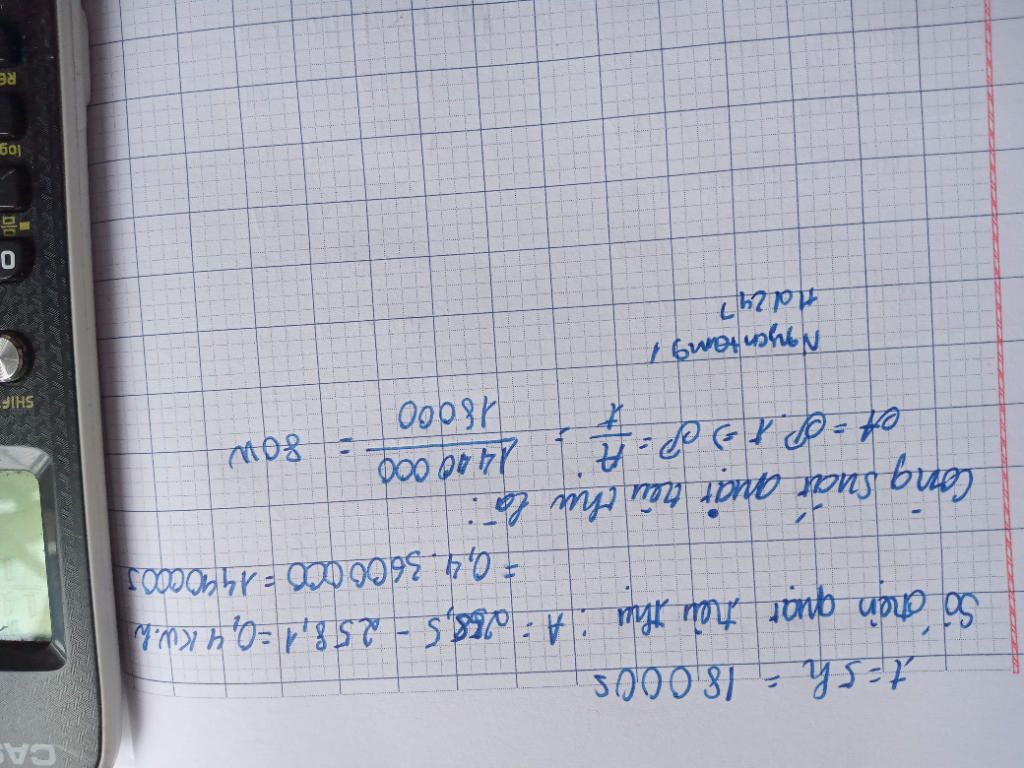 t = 5h = 18000s
Số điện quạt tiêu thụ : A = 258,5 - 258,1 = 0,4 KW.h
= 0,4 . 3600000 = 1440000J
Công suất quạt tiêu thụ là :
A = P.t => P = A/t = 1440000/18000 = 80W
Nguyentam91
Hd247
SHIFT
0
log
RE
CAS